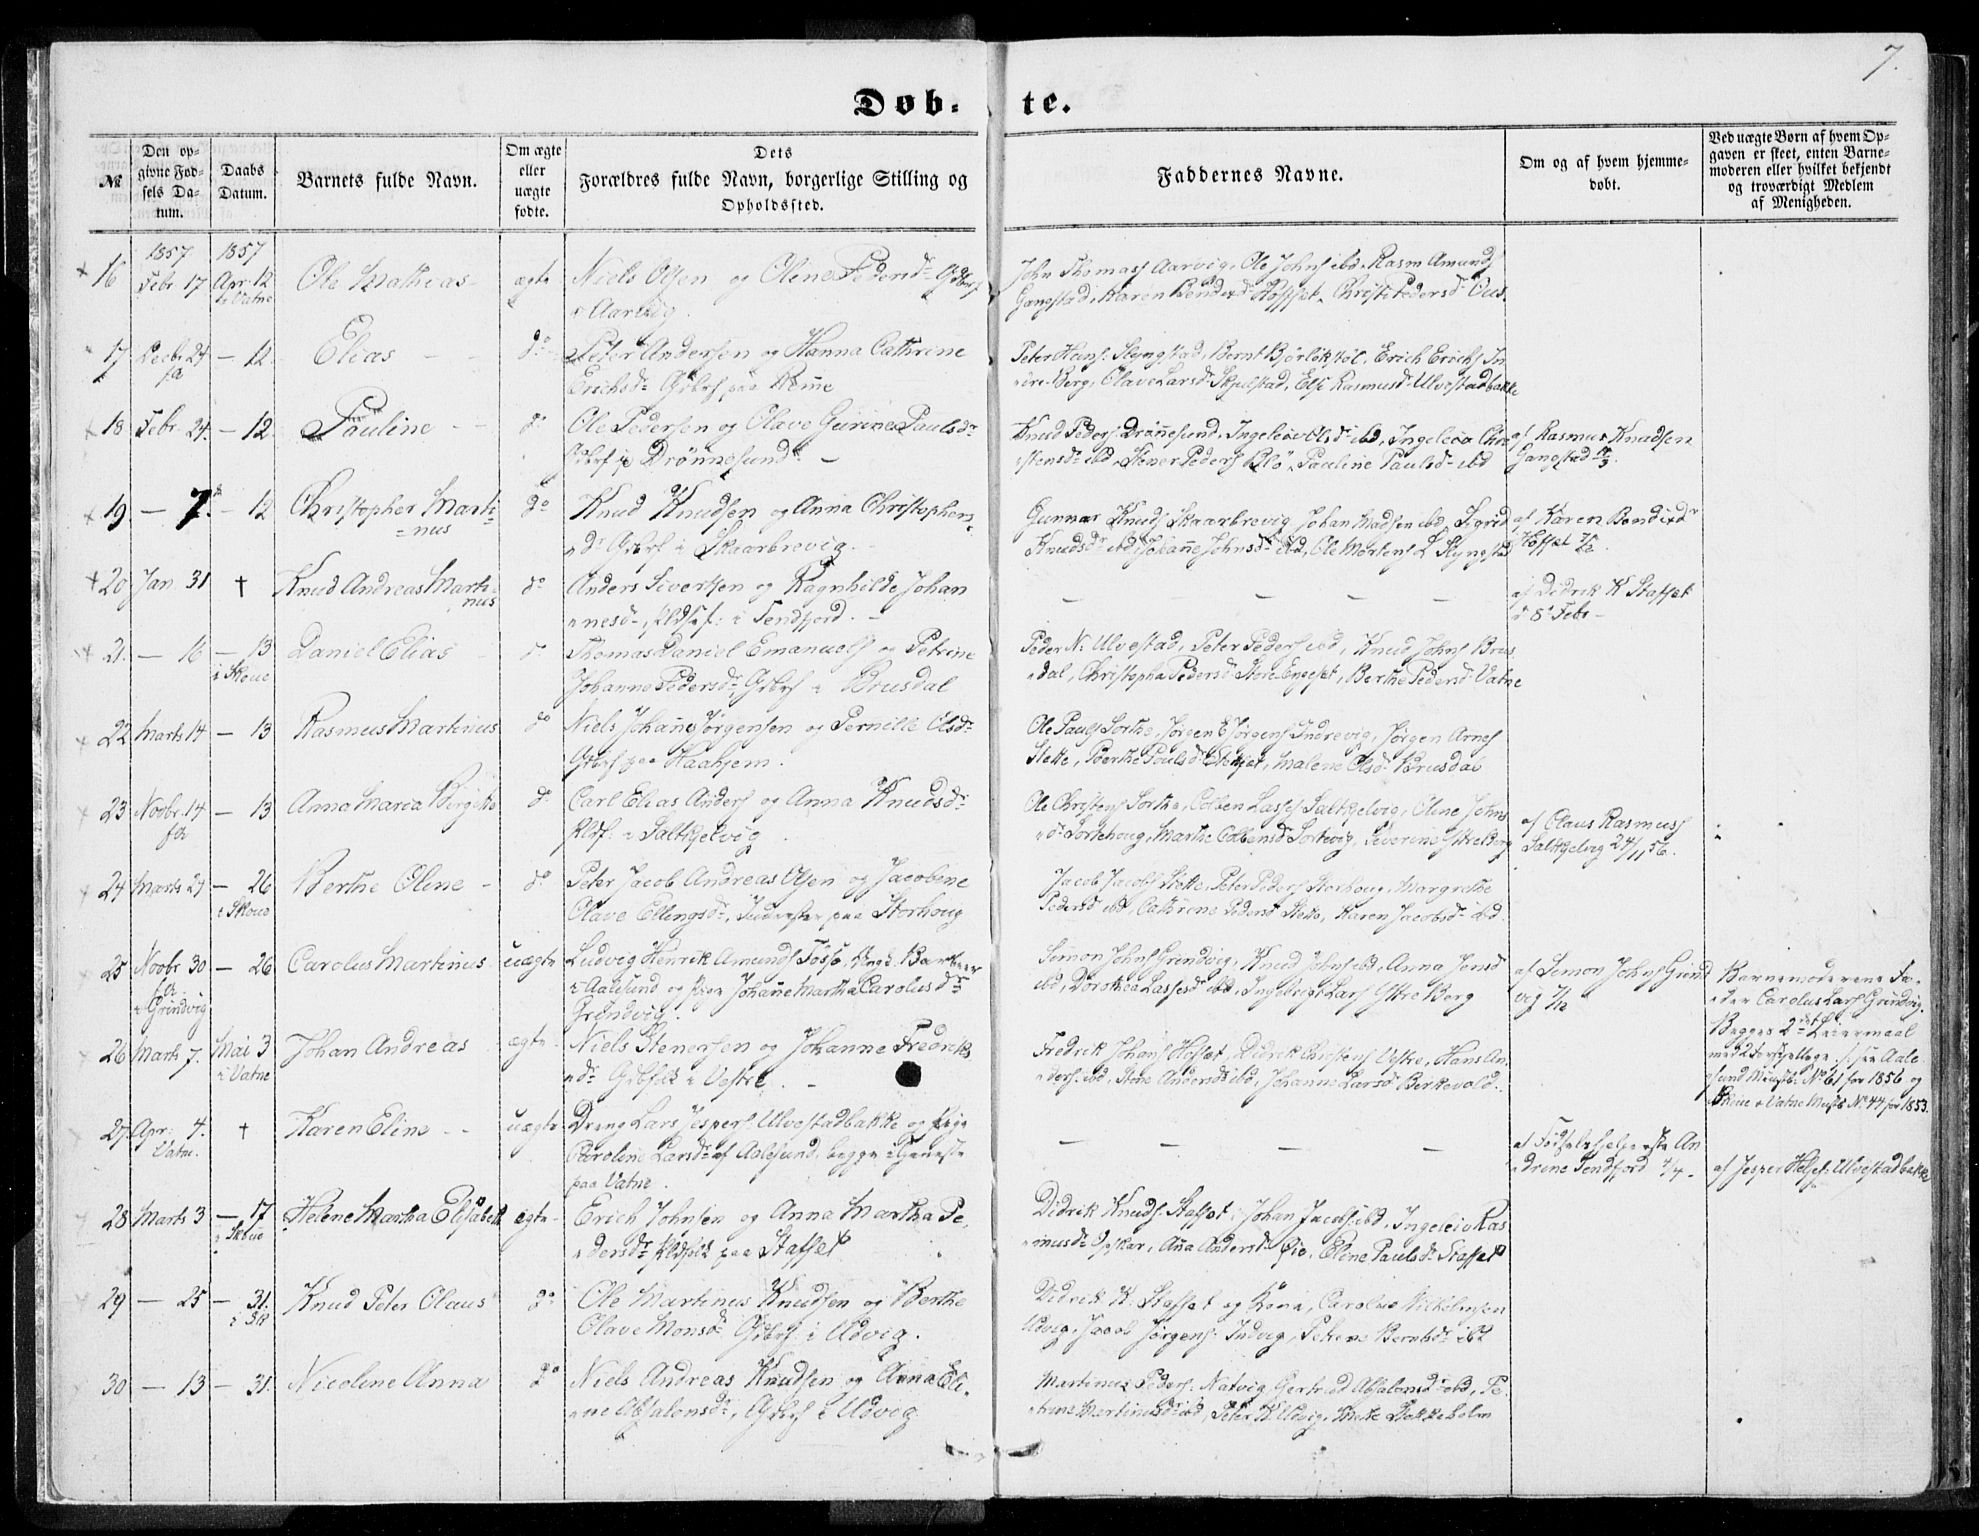 7.
Døb- te.
№
Den opgivne Fødsels Datum.
Daabs Datum.
Barnets fulde Navn.
Om ægte eller uægte fødte.
Dets Forældres fulde Navn, borgerlige Stilling og Opholdssted.
Faddernes Navne.
Om og af hvem hjemmedøbt.
Ved uægte Børn af hvem Opgaven er skeet, enten Barnemoderen eller hvilket bekjendt og troværdigt Medlem af Menigheden.
1857 1857
16 Febr 17 Apr. 12 i Vatne Ole Mathias ægte Niels Olsen og Olene Pedersdr
i Aarvig.
John Thomass Aarvig, Ole Johns ibd. Rasm Amunds
Gangstad, Karen
17 24 - 12 Elias - - do Peter Andersen og Hanna Cathrine
Erichsdr Gbrf paa
Peter Hans: Slyngstad, Bernt Erich Erichs In
dre-Berg, Olave Larsdr Skjelstad, Else Rasmusdr Ulvestadbakke
18 Febr. 24. - 12. Pauline - - do Ole Pedersen og Olave Gurine Paulsdr
Drønnesund. -
Knud Peders: Drønnesund, Ingeleiv Olsdr ibd, Ingeleiv Chri
stensdr ibd, Stener Peders Pauline Paulsdr ibd
af Rasmus Knudsen
Gangstad
19. - 7. - 12 Christopher Marti-
nus
do Knud Knudsen og Anna Christophers
dr Gbrf i Skaarbrevig. -
Gunnar Knuds Skaarbrevig Johan Madsen ibd, Sigrid
Knudsdr ibd, Johanne Johnsdr ibd, Ole Mortens L Slyngstad
af Karen Bendixdr
20 Jan 31 † Knud Andreas Marti-
nus
do Anders Sivertsen og Ragnhilde Johan
nesdr, i Tendfjord. -
- - - -
af Didrik K Stafset
d 8de Febr -
21. - 16 - 13 i Skoue Daniel Elias Thomas Daniel Emanuels og Petrine
Johanne Pedersdr Gbrf i Brusdal
Peder N: Ulvestad, Peter Peders ibd, Knud Johns Brus
dal, Christopha Pedersdr Store Engeset, Berthe Pedersdr Vatne
22 Marts 14 - 13 Rasmus Martinus do Niels Johan Jørgensen og Pernille Olsdr
Gbrf paa Haahjem.
Ole Pauls Jørgen E Jørgens Indrevig, Jørgen Arnes
Stette, Berthe Poulsdr Malene Olsdr Brusdal
23 Novbr. 14 - 13 Anna Maria do Carl Elias Anders og Anna Knudsdr
i Saltkjelvig.
Ole Christens Colben Lasses Saltkjelvig, Oline Johns
dr Sortehoug, Marthe Colbensdr Sortevig, Severine Ytreberg
af Claus Rasmuss
Saltkjelvig 24/11 56.
24 Marts 21 - 26 i Skoue Berthe Oline - do Peter Jacob Andreas Olsen og Jacobine
Olave Ellingsdr, paa Storhoug
Jacob Jacobs Stette, Peter Peders Storhoug, Margrethe
Pedersd ibd, Cathrine Pedersd Stette, Karen Jacobsdr ibd.
25 Novbr 30 i Grindvig - 26 Carolus Martinus uægte Ludvig Henrik Amunds
i Aalesund og Pige Johanne Martha Carolusdr
Grindvig.
Simon Johns Grindvig, Knud Johns ibd, Anna Jensd
ibd, Dorothea Lassesd ibd, Lars Ytre Berg
af Simon Johns Grind
vig 7/12
Barnemoderens Fa-
der Carolus Lars Grindvig.
Begges 2det Leiermaal
med 2 forskjellige. f. see Aale-
sund Minstb: No 61 for 1856 og
Skoue i Vatne Mistb No 44 for 1853.
26 Marts 7. Mai 3 i Vatne Johan Andreas ægte Niels Stenersen og Johanne Fredriks
dr i Vestre. -
Fredrik Johans Hofset, Didrik Christens Vestre, Hans An
ders: ibd, Stine Andersdr ibd, Johanne Larsd Berkevold.
27. Apr: 4. Vatne. † Karen Eline - - uægte Dreng Lars Jespers: Ulvestadbakke og Pige
Caroline Larsdr af Aalesund, begge i Tjeneste
paa Vatne.
- - - -
af
drine Tendfjord 4/4.
af Jesper Ulvestadbakke
28 Marts 3 - 17 i Skoue Helene Martha Elisabeth ægte Erich Johnsen og Anna Martha Pe
dersdr paa Stafset
Didrik Knuds: Stafset, Johan Jacobs: ibd, Ingeleiv Ras
musdr Opskar, Ana Andersd Eline Paulsdr Stafset
29 - 25 - 31. i Sk Knud Peter Olaus do Ole Martinus Knudsen og Berthe
Olave Monsdr Gbrf i Udvig.
Didrik K: Stafset og Kone, Carolus Vilhelmsen
Udvig, Jacob Jørgens: Indvig, Berntsdr ibd
30 - 13 - 31. Nicoline Anna do Niels Andreas Knudsen og Anna Eli
ne Absalonsdr, Gbrf i Udvig
Martinus Peders: Natvig Gertrud Absalonsdr ibd, Pe
trine Martinusdr ibd, Peter K Udvig,